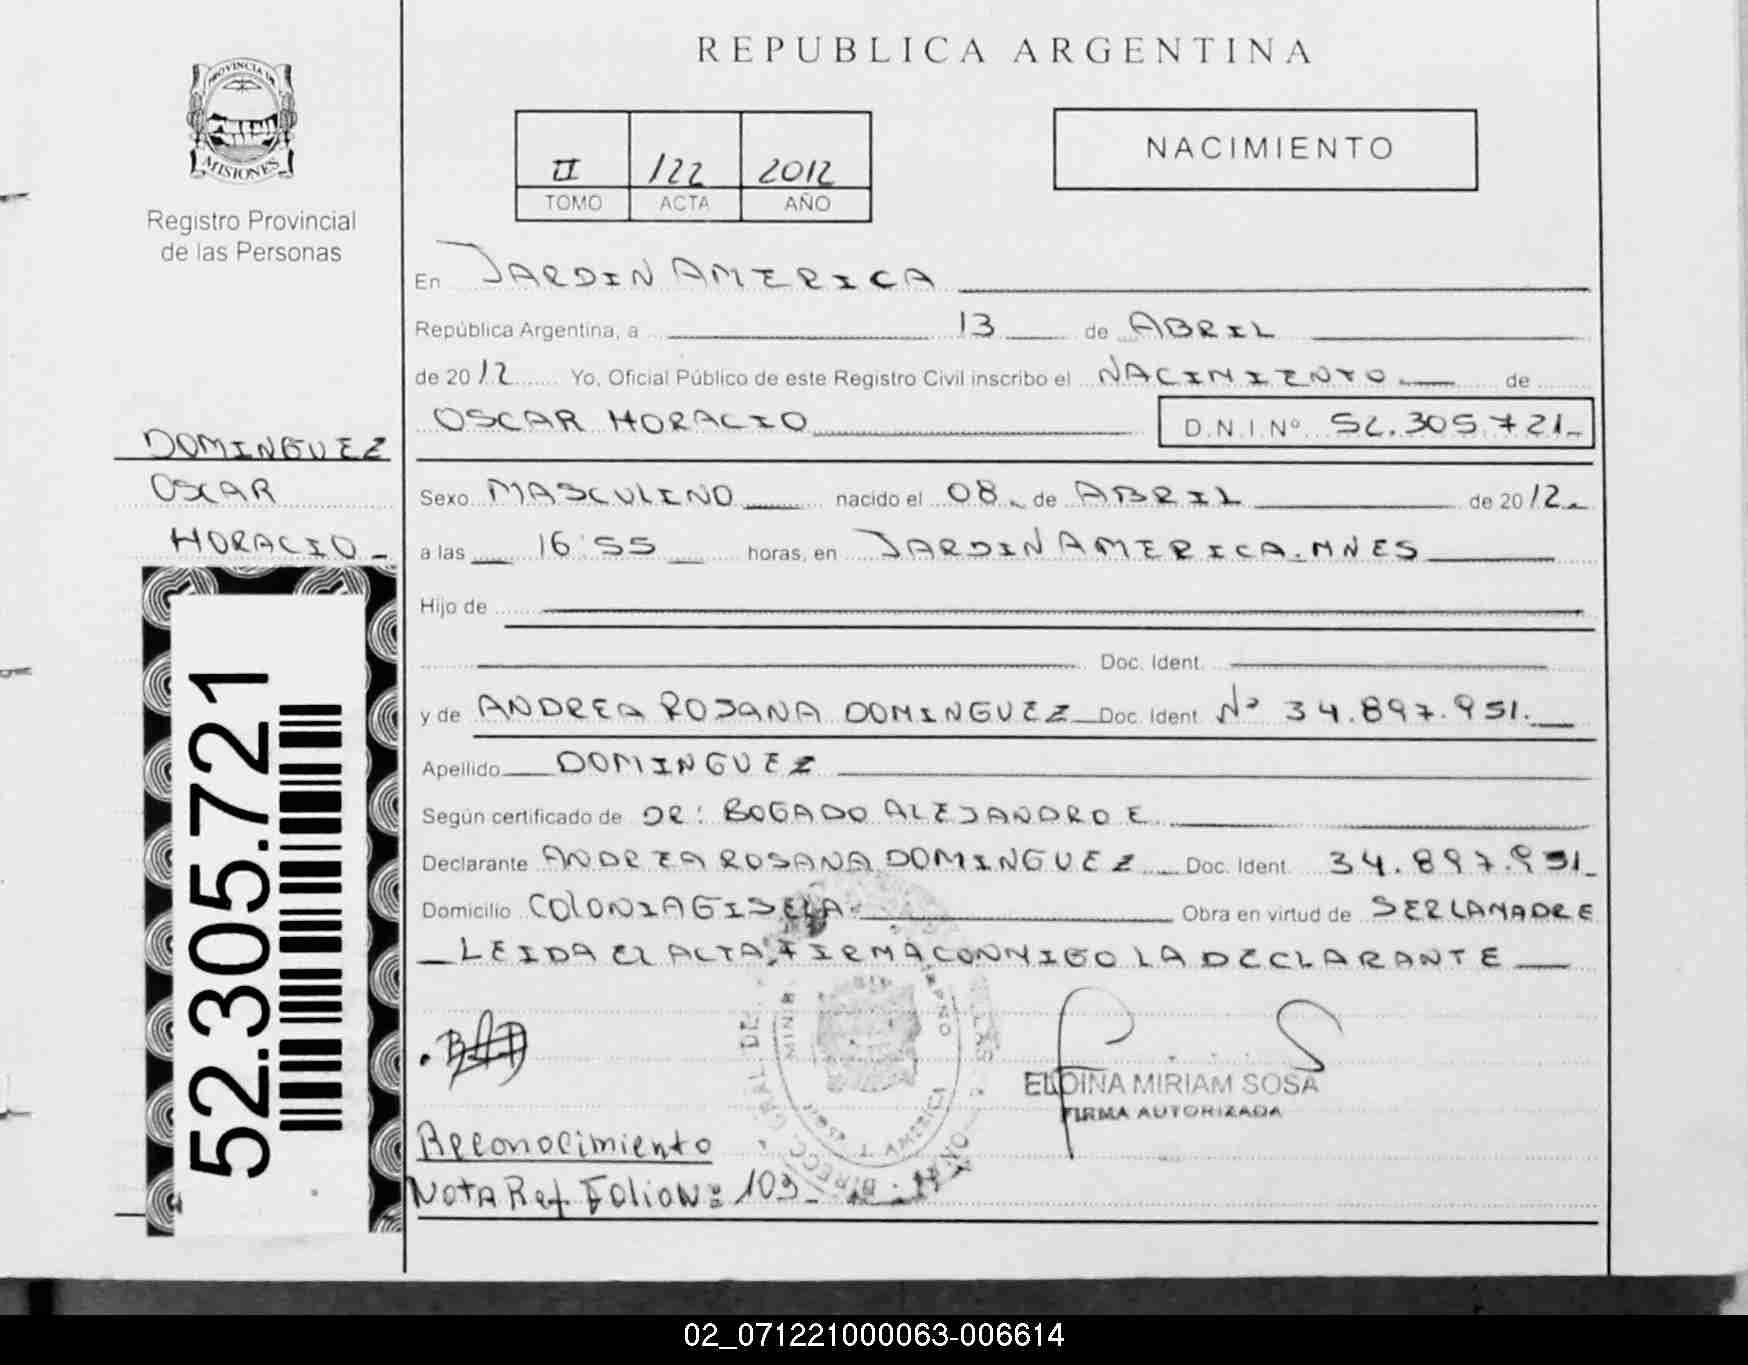 REPUBLICA ARGENTINA
PROVINCIA DE
MISIONES
Registro Provincial
de las Personas
II 122 2012
TOMO ACTA AÑO
NACIMIENTO
En JARDIN AMERICA
República Argentina, a 13 de ABRIL
de 2012 Yo, Oficial Público de este Registro Civil inscribo el NACIMIENTO de
OSCAR HORACIO D.N.I.Nº 52.305.721-
DOMINGUEZ
OSCAR
HORACIO-
52.305.721
Sexo MASCULINO nacido el 08 de ABRIL de 2012
a las 16:55 horas, en JARDIN AMERICA. MNES
Hijo de
Doc. Ident.
y de ANDREA ROSANA DOMINGUEZ Doc. Ident. Nº 34.897.951.
Apellido DOMINGUEZ
Según certificado de DR: BOGADO ALEJANDRO E
Declarante ANDREA ROSANA DOMINGUEZ Doc. Ident. 34.897.951
Domicilio COLONIA GISELA- Obra en virtud de SER LA MADRE
LEIDA EL ACTA, FIRMA CONMIGO LA DECLARANTE
ELOINA MIRIAM SOSA
FIRMA AUTORIZADA
Reconocimiento
Nota Ref. Folio Nº 109
02_071221000063-006614